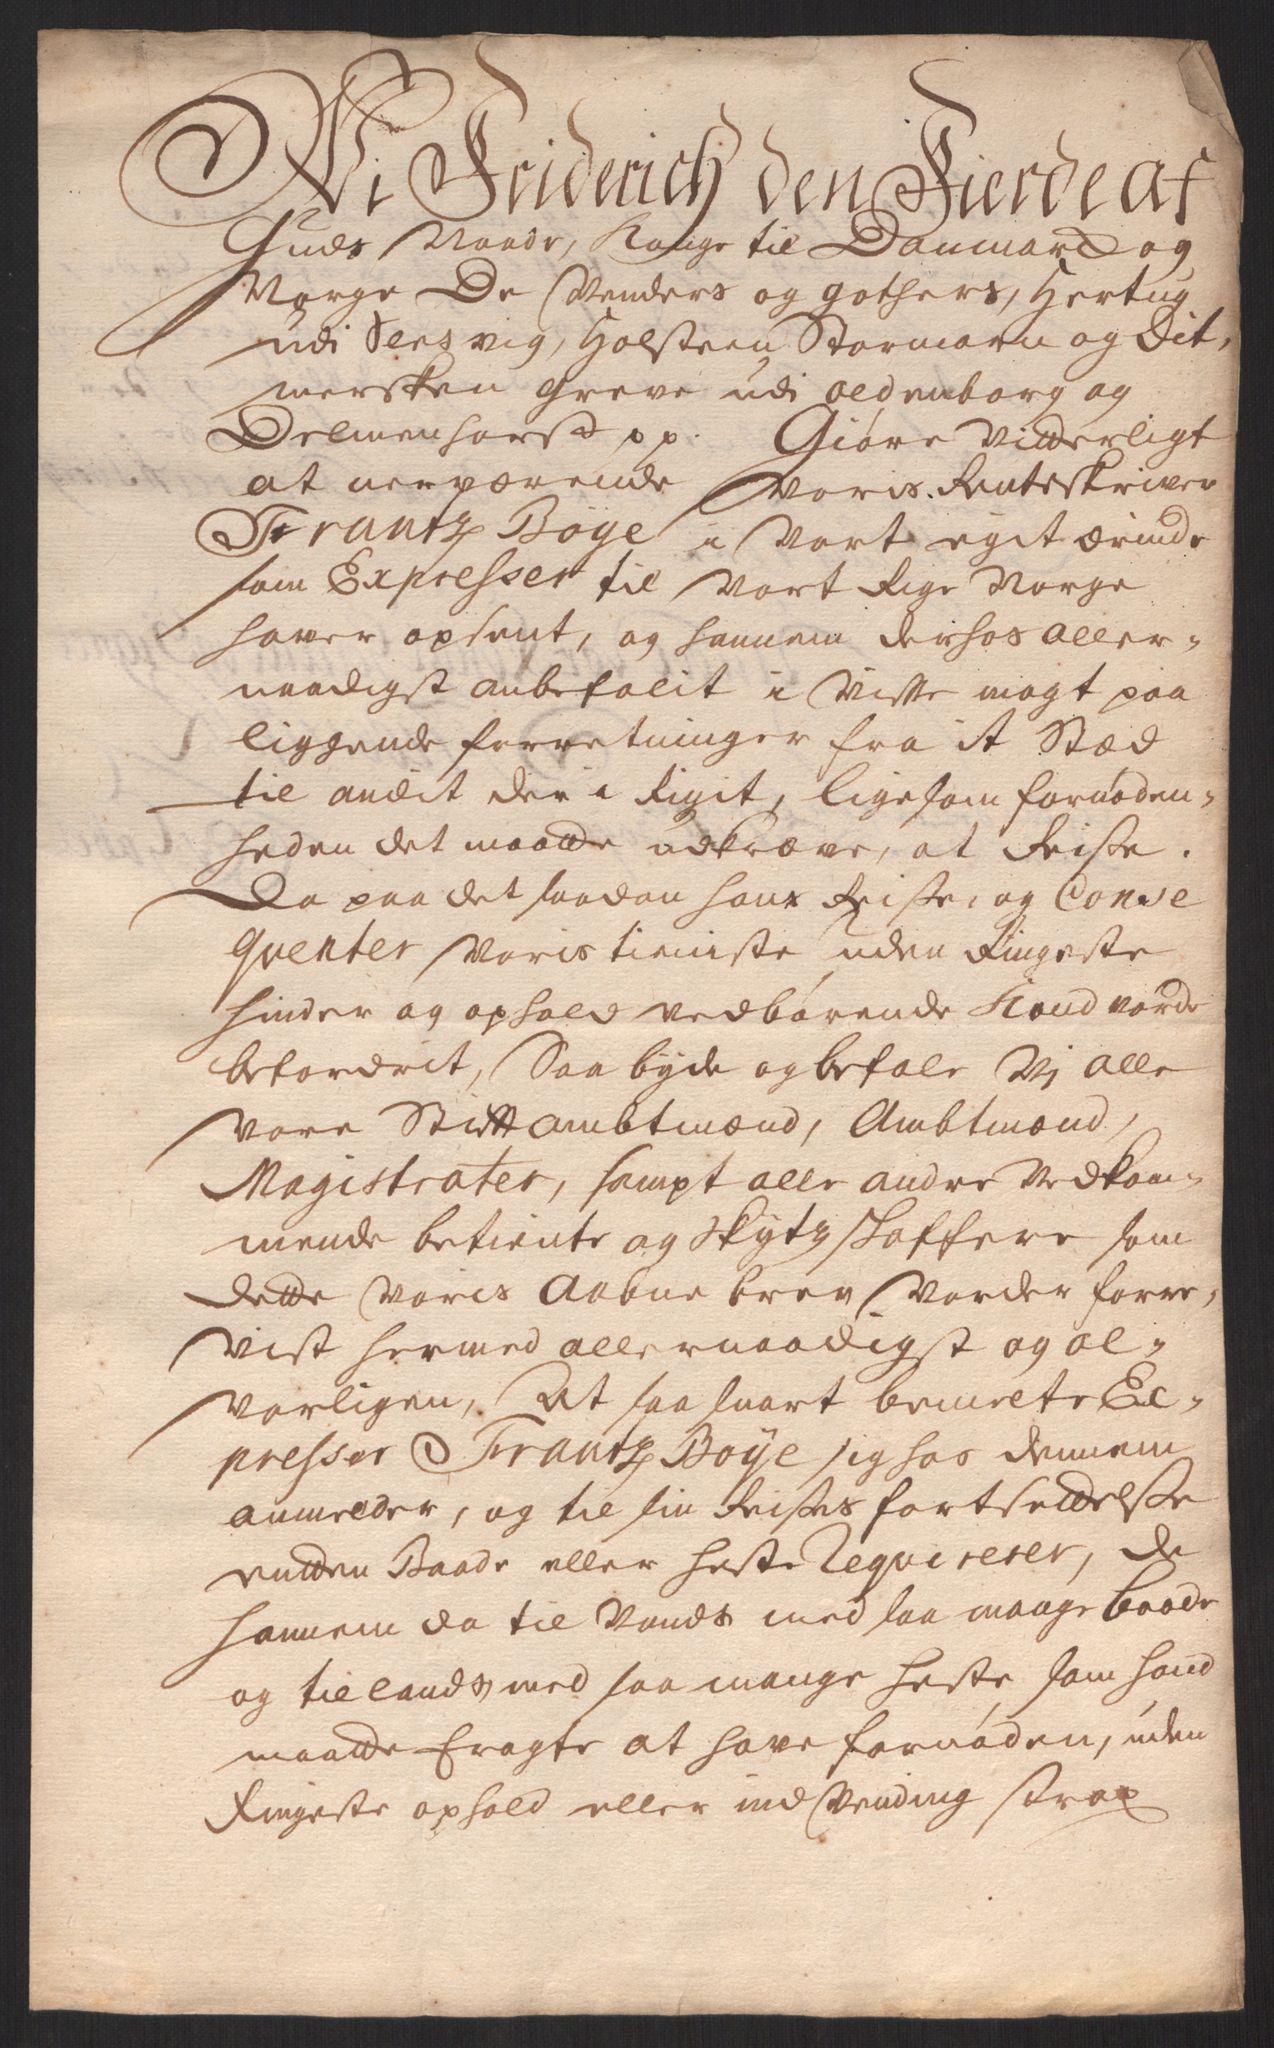 Vi Friderich den Fierde af
Guds Naade, Konge til Danmark og
Norge De Venders og gothers, Hertug
udi Slesvig, Holsteen Stormarn og Dit-
mersken Greve udi oldenborg og
Delmenhorst pp. Giøre Vitterligt
at nerværende Voris Renteskriver
Frantz Böye i Vort egit ærinde
som Expresser til Vort Rige Norge
haver opsent, og hannem derhos aller-
naadigst anbefalit i Visse magt paa
liggende forretninger fra it Stæd
til andit der i Rigit, ligesom fornøden-
heden det maatte udkræve, at Reise.
Da paa det saadan hans Reise, og Conse
qventer Voris tieniste uden Ringeste
hinder og ophold vedbørende Kand vorde
befordrit, Saa byde og befale Vj alle
vore Stiftambtmænd, Ambtmænd,
Magistrater, sampt alle andre Vedkom-
mende betiente og Skytz skaffere som
dette Voris Aabne brev Vorder forre-
vist hermed allernaadigst og al-
vorligen, At saa snart bemelte Ex-
presser Frantz Böye sig hos dennem
anmelder, og til sin Reises fortsettelse
entten Baade eller Heste Requirerer, de
hannem da til Vands med saa mange baade
og til lands med saa mange heste som hand
maatte Eragte at have fornøden, uden
Ringeste ophold eller indvending strax